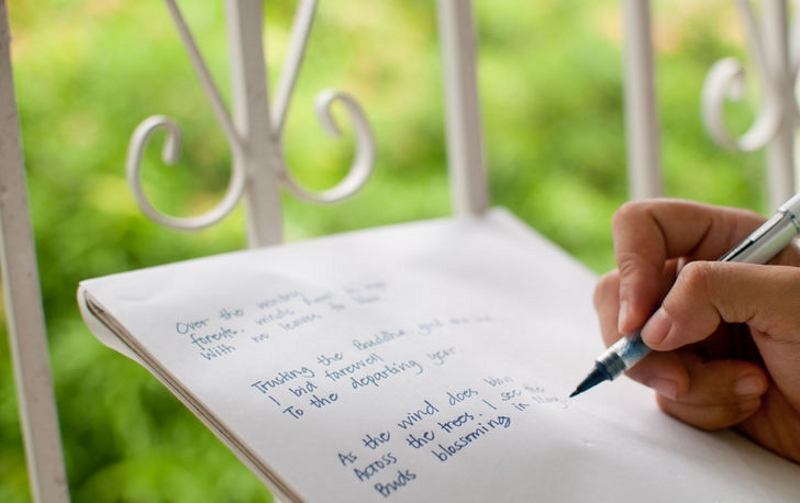 Over the wintry
forests, winds howl in rage
With no leaves to blow
Trusting the Buddha, good and bad
I bid farewell
To the departing year
As the wind does blow
Across the trees, I see the
Buds blossming in May